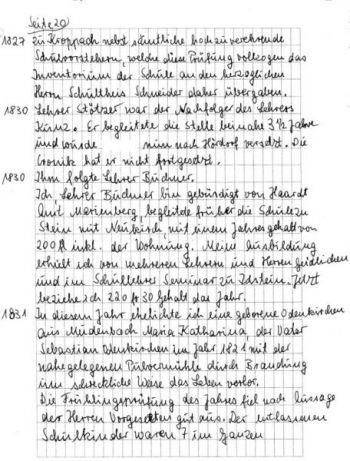 Seite 20
1827 zu Kroppach nebst sämtliche hochzuverehrende
Schulvorstehern, welche diese Prüfung vollzogen das
Inventorium der Schule an den herzoglichen
Herrn Schultheis Schneider daher übergaben.
1830 Lehrer Stötzer war der Nachfolger des Lehrers
Kunz. Er begleitete die Stelle beinahe 3 1/2 Jahre
und wurde nun nach Hördorf versetzt. Die
Cronik hat er nicht fortgesetzt.
1830 Ihm folgte Lehrer Büchner.
Ich, Lehrer Büchner bin gebürdigt von Haardt
Amt Marienberg, begleitete früher die Schule zu
Stein mit Neukirch, mit einem Jahresgehalt von
200 fl inkl. der Wohnung. Meine Ausbildung
erhielt ich von mehreren Lehrern und Herren Geistlichen
und im Schullehrer Seminar zu Idstein. Jetzt
beziehe ich 220 fl 30 Gehalt das Jahr.
1831 In diesem Jahr ehelichte ich eine geborene Odenkirchen
aus Mudenbach Maria Katharina, der Vater
Sebastian Odenkirchen im Jahr 1821 mit der
nahegelegenen Pulvermühle durch Brandung
um schreckliche Weise das Leben verlor.
Die Frühlingsprüfung des Jahres fiel nach Aussage
der Herren Vorgesetzten gut aus. Der entlassenen
Schulkinder waren 7 im Ganzen